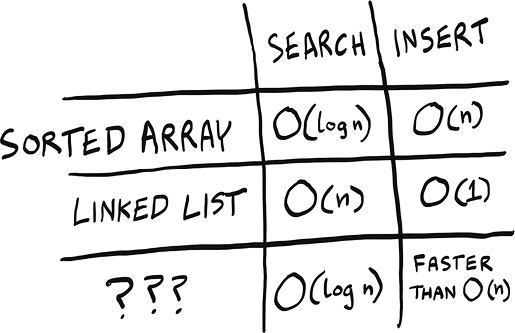 SEARCH INSERT
SORTED ARRAY O(log n) O(n)
LINKED LIST O(n) O(1)
??? O(log n) FASTER
THAN O(n)